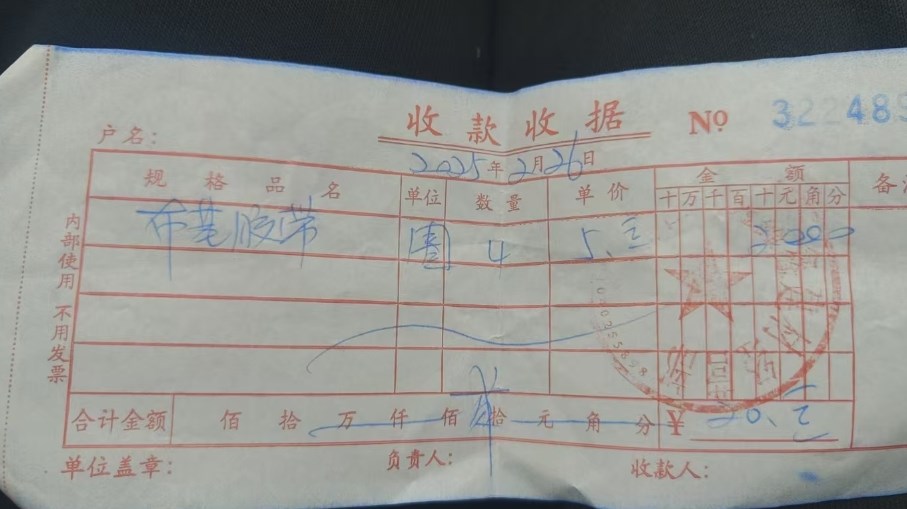 收款收据 № 322489
户名:
2025年2月26日
规格品名 单位 数量 单价 金额 备注
十万千百十元角分
布基胶带 圈 4 5.
内部使用 不用发票
合计金额 佰拾万仟佰拾元角分 ¥ 20.
单位盖章: 负责人: 收款人: